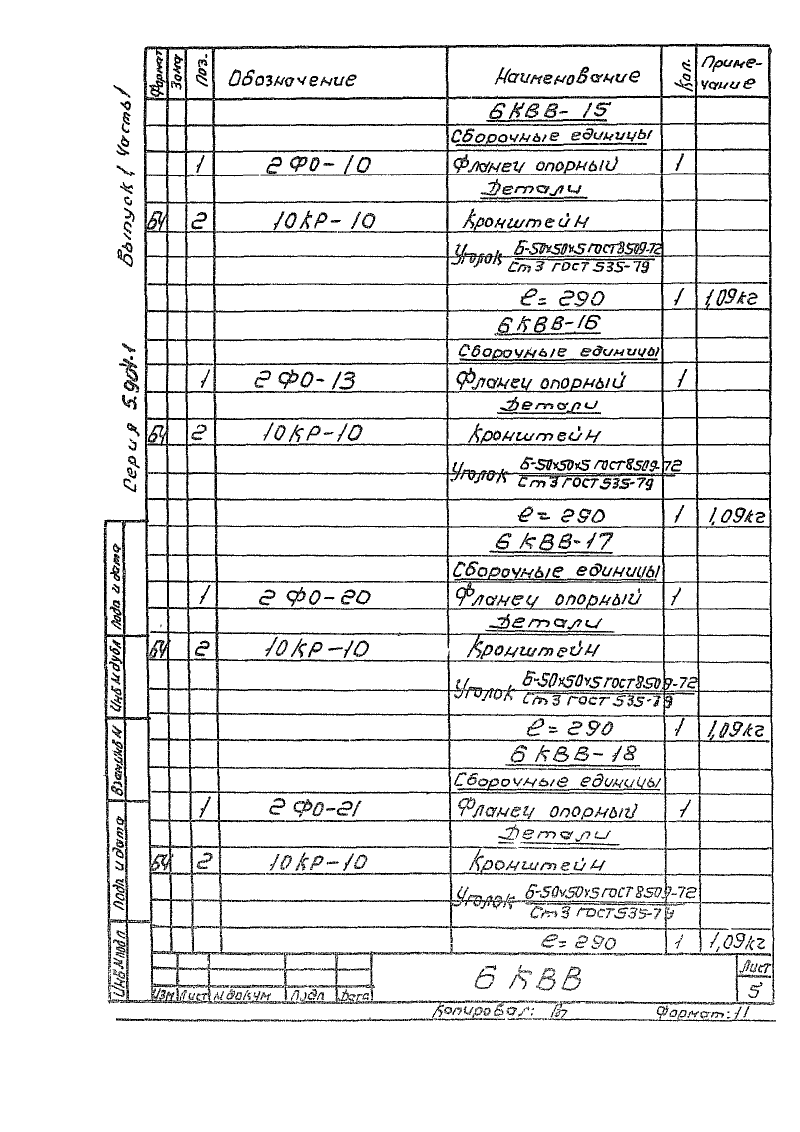 Формат Зона Поз. Обозначение Наименование Кол. Приме-
чание
6КВВ-15
Сборочные единицы
1 2ФО-10 Фланец опорный 1
Детали
БЧ 2 10КР-10 Кронштейн
Уголок Б-50х50х5 ГОСТ 8509-72
Ст3 ГОСТ 535-79
ℓ=290 1 1,09кг
6КВВ-16
Сборочные единицы
1 2ФО-13 Фланец опорный 1
Детали
БЧ 2 10КР-10 Кронштейн
Уголок Б-50х50х5 ГОСТ 8509-72
Ст3 ГОСТ 535-79
ℓ=290 1 1,09кг
6КВВ-17
Сборочные единицы
1 2ФО-20 Фланец опорный 1
Детали
БЧ 2 10КР-10 Кронштейн
Уголок Б-50х50х5 ГОСТ 8509-72
Ст3 ГОСТ 535-79
ℓ=290 1 1,09кг
6КВВ-18
Сборочные единицы
1 2ФО-21 Фланец опорный 1
Детали
БЧ 2 10КР-10 Кронштейн
Уголок Б-50х50х5 ГОСТ 8509-72
Ст3 ГОСТ 535-79
ℓ=290 1 1,09кг
Серия 5.904-1 Выпуск 1 Часть 1
Подп и дата
Инв № дубл
Взам инв №
Подп. и дата
Инв № подл.
Изм Лист № докум Подп Дата
6КВВ
Лист
5
Копировал:
Формат: 11